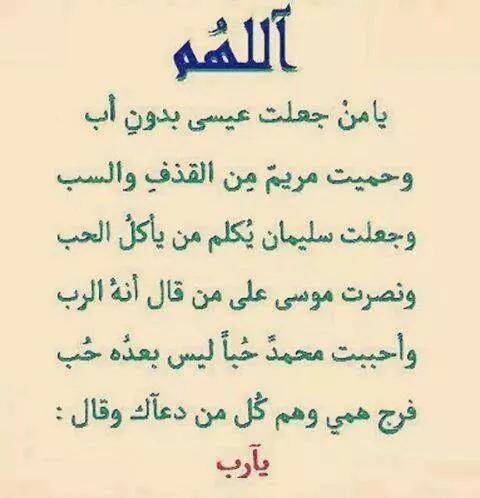 آللهُم
يا منْ جعلت عيسى بدونِ أب
وحميت مريمّ مِن القذفِ والسب
وجعلت سليمان يُكلم من يأكلُ الحب
ونصرت موسى على من قال أنهُ الرب
وأحببت محمدً حُباً ليس بعدُه حُب
فرج همي وهم كُل من دعآك وقال :
يآرب